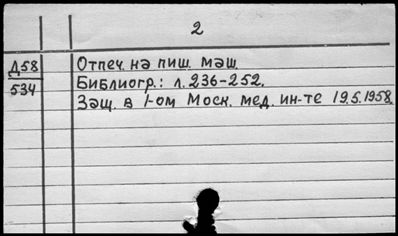 2
Д58
534
Отпеч. на пиш. маш.
Библиогр.: л. 236-252.
Защ. в 1-ом Моск. мед. ин-те 19.5.1958.